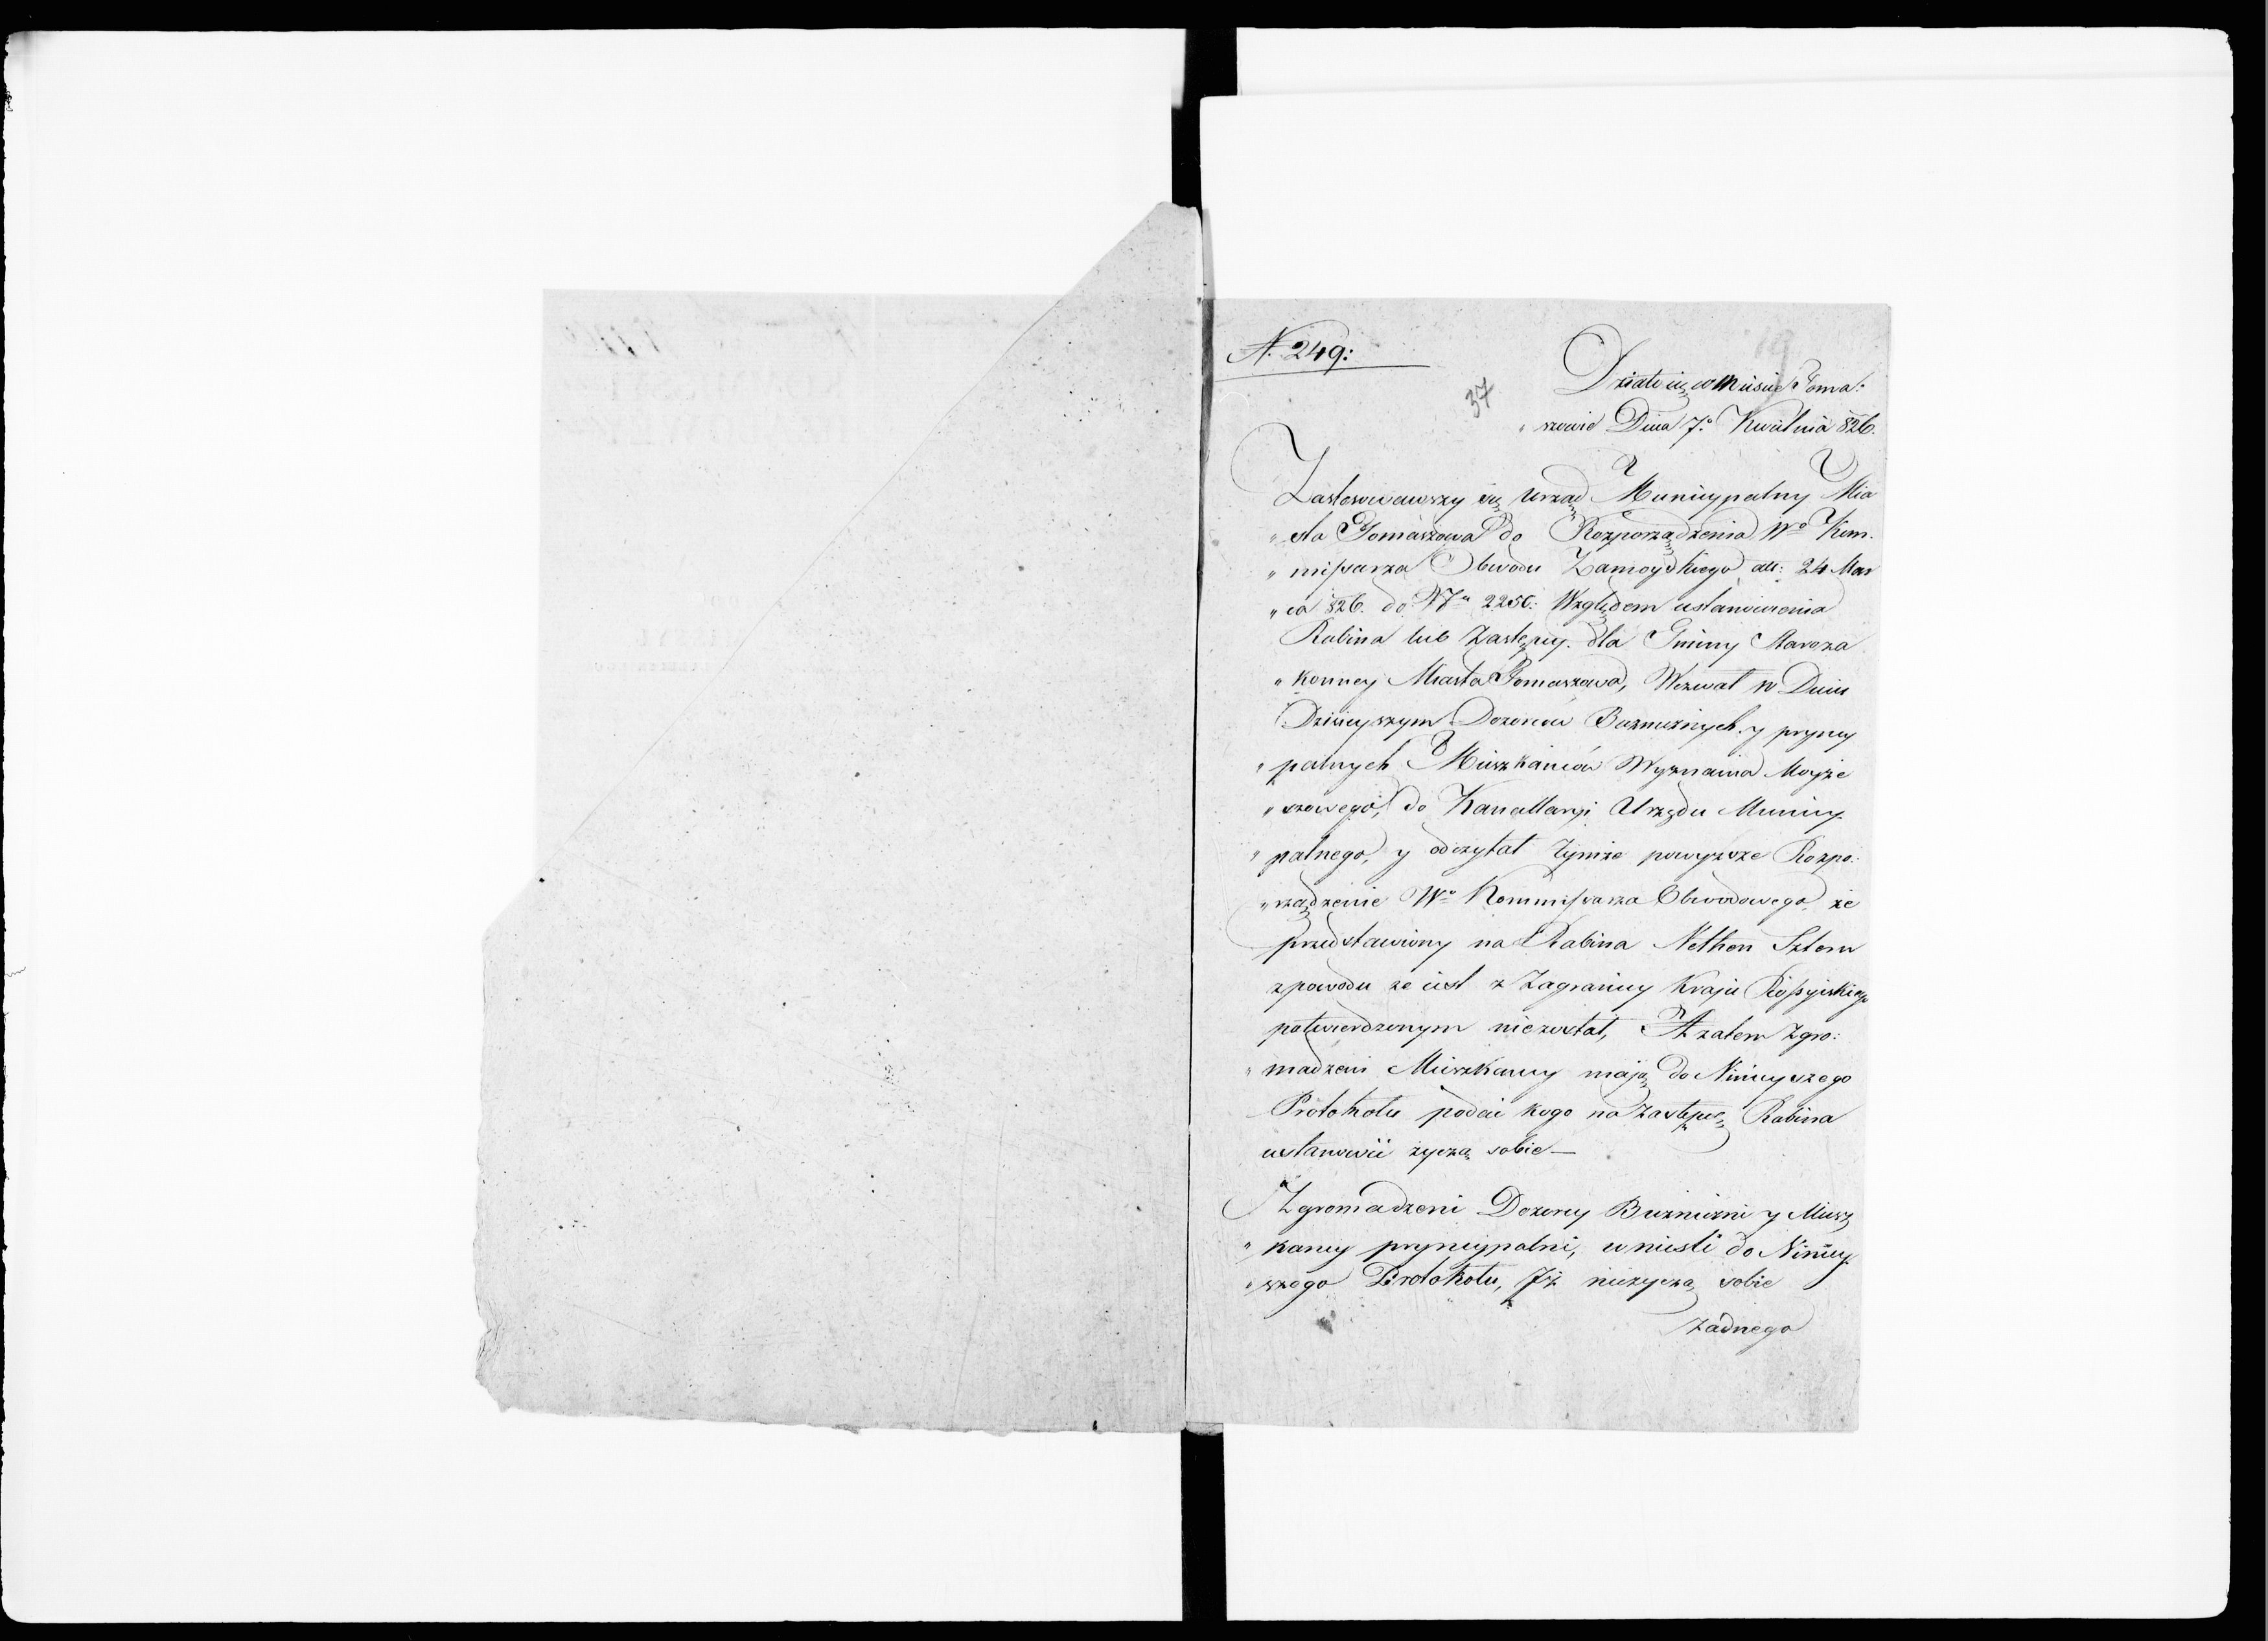 N. 249:
37
Działo się w Mieście Toma:
„ szowie Dnia 7o Kwietnia 826.
Zastosowawszy się Urząd Municypalny Mia
„ sta Tomaszowa do Rozporządzenia Wo Kom.
„ missarza Obwodu Zamoyskiego dtt: 24 Mar
„ ca 826. do Nru 2250: Względem ustanowienia
Rabina lub Zastępcy dla Gminy Staroza
„ konney Miasta Tomaszowa, Wezwał w Dniu
Dzisieyszym Dozorców Bużniznych y pryncy
„ palnych Mieszkańców Wyznania Moyże
„ szowego, do Kancellaryi Urzędu Municy
„ palnego, y odczytał Tymże powyższe Rozpo:
„ rządzenie Wo Kommissarza Obwodowego że
przedstawiony na Rabina Nethen Sztern
z powodu że iest z Zagranicy Kraju Rossyiskiego
potwierdzonym niezostał, A zatem Zgro:
„ madzeni Mieszkancy mają do Ninieyszego
Protokołu podać kogo na Zastępcę Rabina
ustanowić życzą sobie —
Zgromadzeni Dozorcy Bużnizni y Miesz
„ kancy pryncypalni, wnieśli do Niniey
„ szego Protokołu, Iż nieżyczą sobie
żadnego